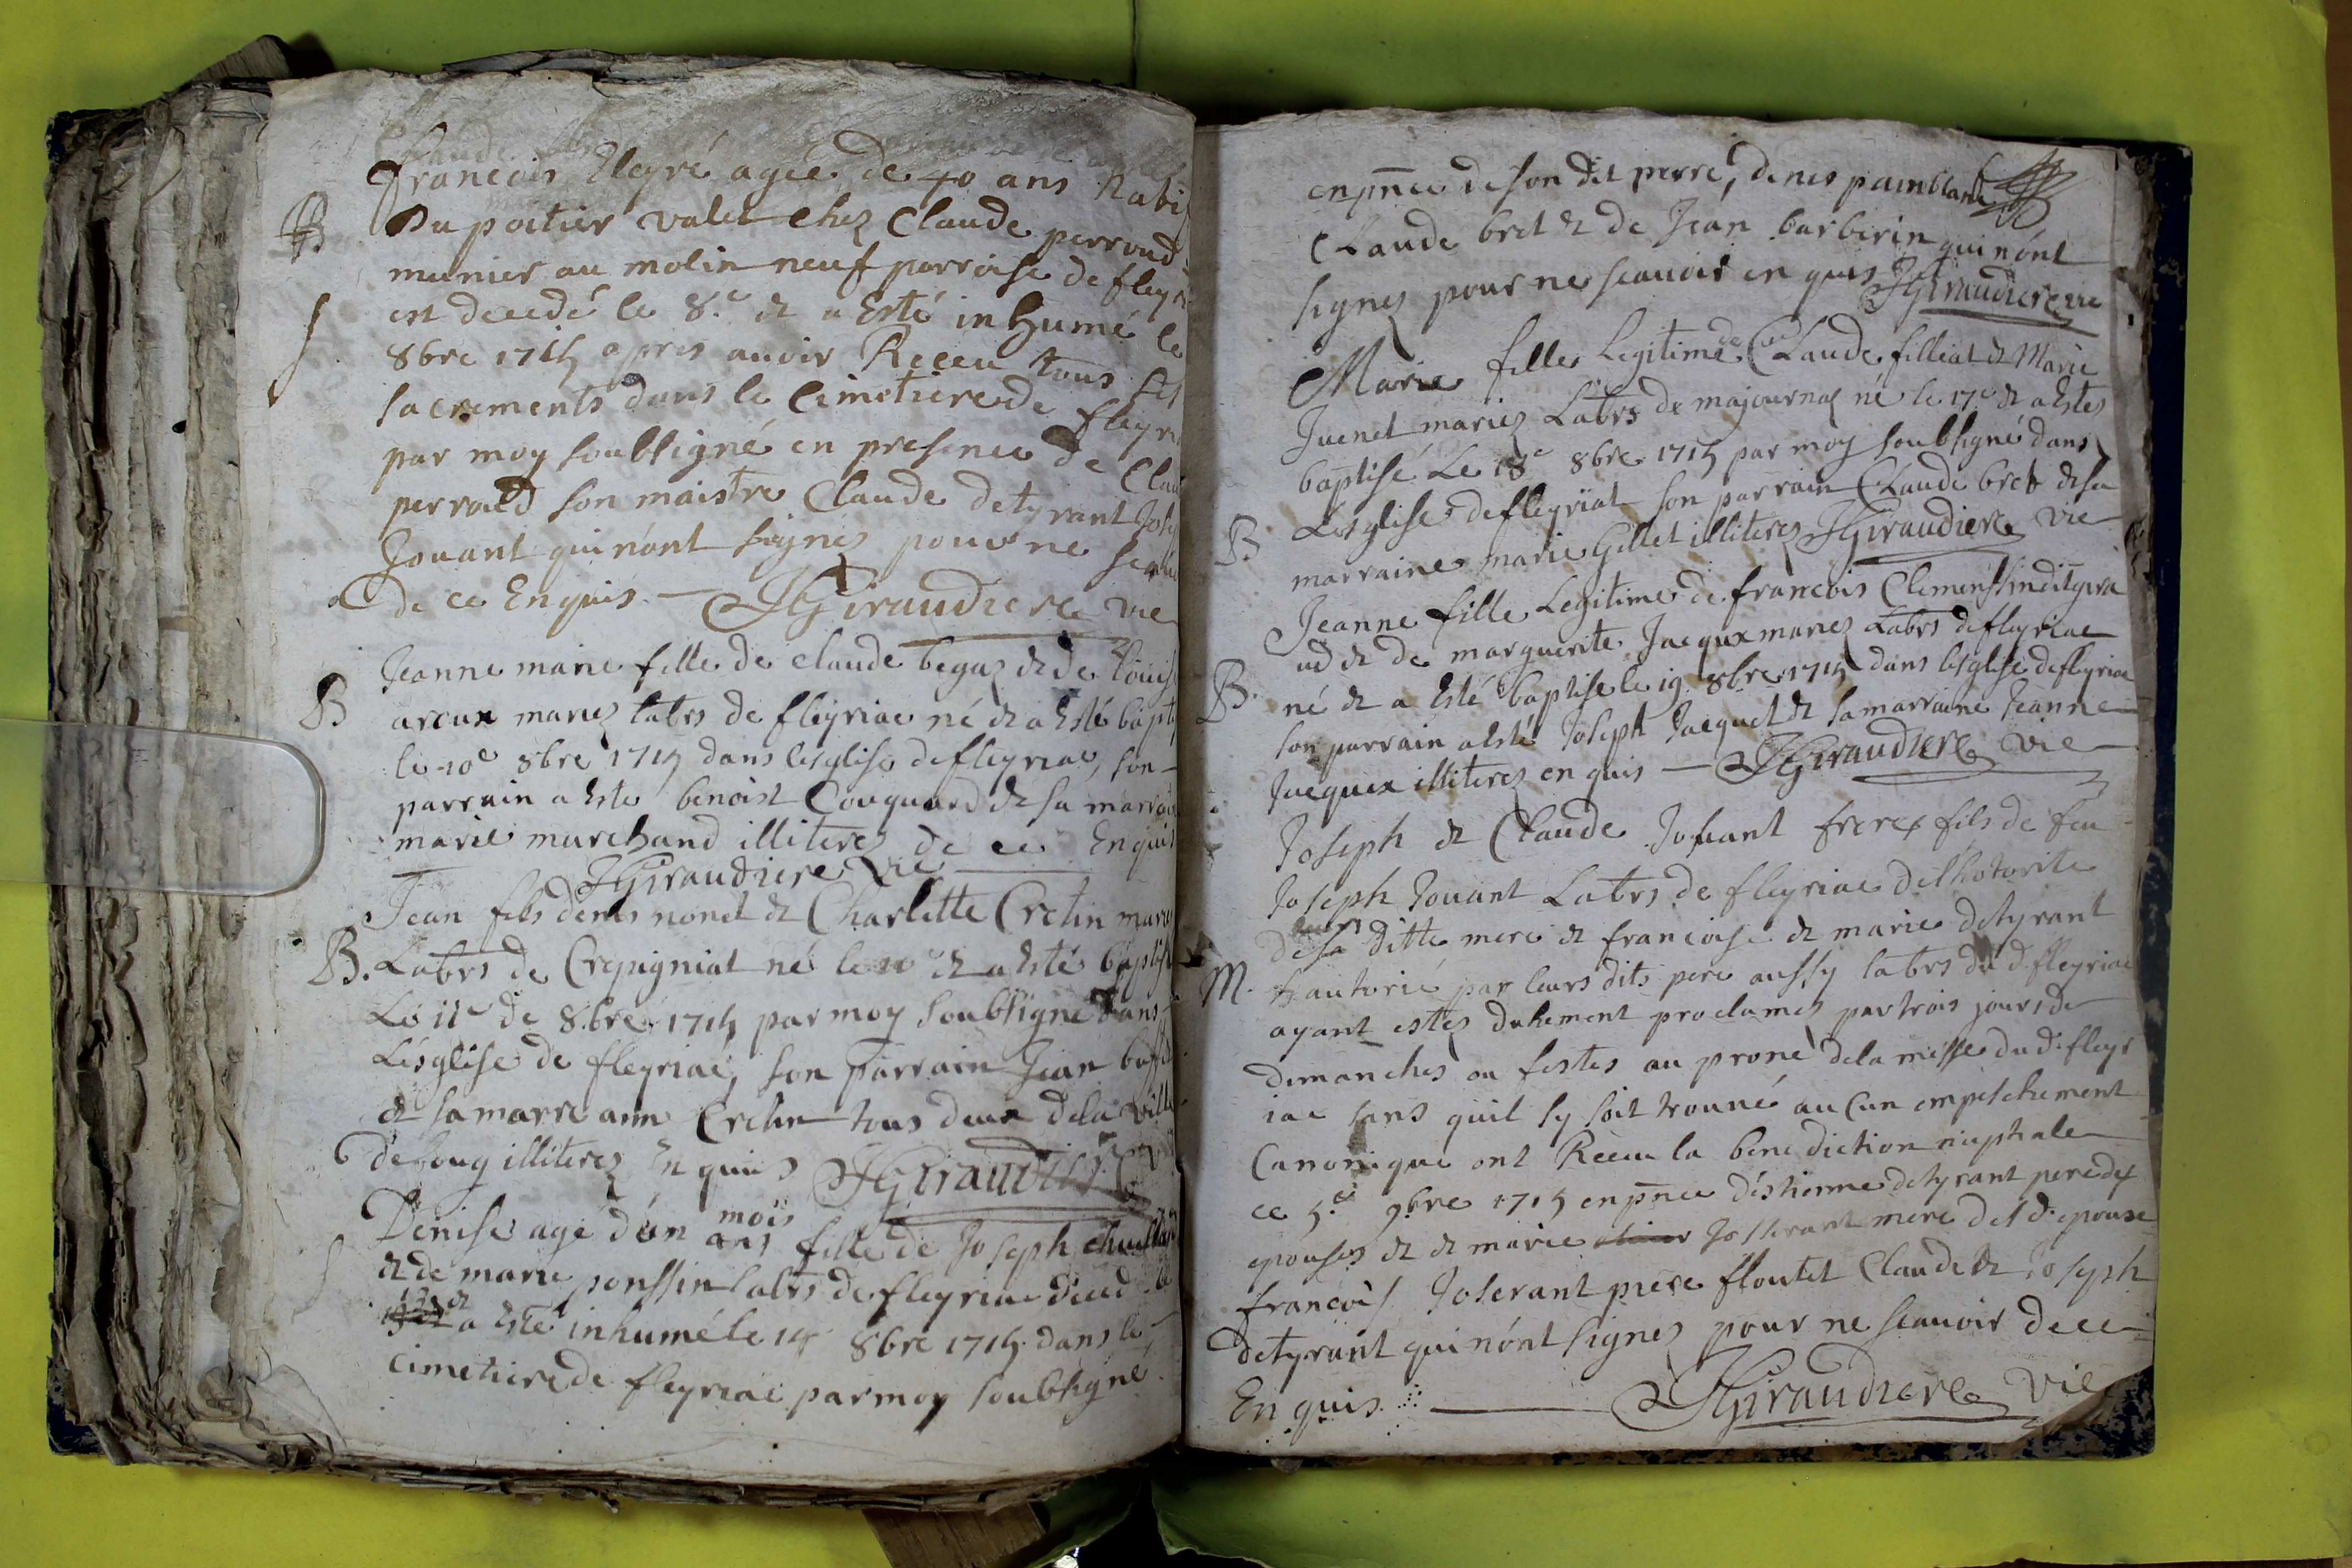 francois Elegré agée de 40 ans habi
B Du poitier valet chez Claude perroud
munier au molin neuf parroise de fleyri
S est decedé le 8.e & a Esté inhumé le
8bre 1715 apres avoir Receu tous ses
sacrements dans le Cimetiere de fleyri
par moy soubsigné en presence de Clau
perroud son maistre Claude detyrant Jose
Jouant qui nónt signés pour ne scavo
de ce Enquis — JGiraudiere vic
Jeanne marie fille de claude beguz & de Louis
B arcux mariez labrs de fleyriac né & a Esté bapti
le 10e 8bre 1715 dans lesglise de fleyriac, son
parrain a Este benoist Couquard & sa marrai
marie marchand illiterez de ce Enquis
JGiraudiere Vic
Jean fils denis nonet & Charlette Cretin marie
B. Labrs de Crepigniat né le 11e & a Esté baptis
Le 11e de 8bre 1715 par moy soubsigné dans
Lésglise de fleyriac, son parrain Jean buff
& sa marre ann Cretin tous deux de la ville
de boug illiterez Enquis JGiraudiere
Denise agé dún mois ans fille de Joseph chu
S & de marie ponssin labrs de fleyriac deced le
13e & a Esté inhumé le 14 8bre 1715 dans le
cimetiere de fleyriac par moy soubsigné
en pnce de son dit perre, denis pamblanc
Claude bret & de Jean barberin qui nónt
signez pour ne scavoir en quis JGiraudiere vic
Marie fille Legitime de Claude filliat & Marie
Juenet mariez Labrs de majournaz né le 17e & a Estes
baptisé Le 18e 8bre 1715 par moy soubsigné dans
Lésglise de fleyriat son parrain Claude bret & sa
B marraine marie Gillet illiterez JGiraudiere vic
Jeanne fille Legitime de francois Clement sindit gira
ud & de marguerite Jacqux mariez Labrs de fleyriac
B. né & a Esté baptise le 19 8bre 1715 dans lésglise de fleyriac
son parrain a Esté Joseph Jacquet & sa marraine Jeanne
Jacquex illiterez en quis — JGiraudiere vic
Joseph & Claude Jouant freres fils de feu
Joseph Jouant Labrs de fleyriac de lhotorite
de leurs ditte mere & francoise & marie detyrant
M. autorié par leurs dits pere aussy labrs du d. fleyriac
ayant estez duhement proclamés par trois jours de
dimanches ou festes au prone de la messe du d. fleyr
iac sans quil sy soit trouné aucun empeschement
Canonique ont Receu la benediction nuptiale
ce 5.e 9bre 1715 en pnce déstienne detyrant pere des
epouses & & marie Josserant mere des d. epouse
francois Joserant piere floutet Claude & Joseph
detyrant qui nónt signez pour ne scavoir de ce
Enquis — JGiraudiere vic